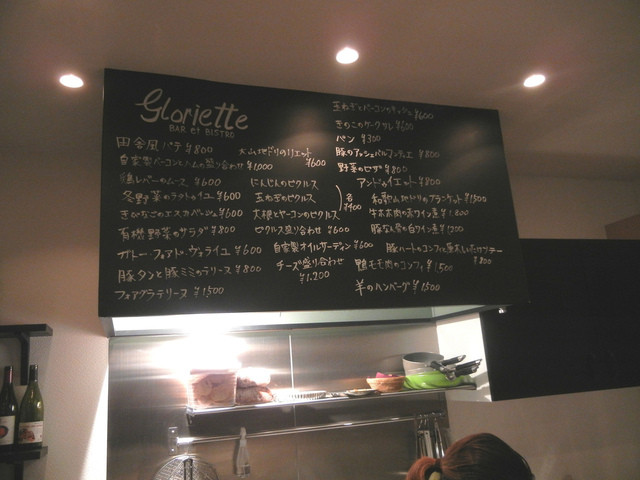 Gloriette
BAR et BISTRO
田舎風パテ ¥800
自家製ベーコンとハムの盛り合わせ ¥1,000
鶏レバーのムース ¥600
冬野菜のラタトゥイユ ¥600
きびなごのエスカベッシュ ¥600
有機野菜のサラダ ¥800
ガトー・フォアド・ヴォライユ ¥600
豚タンと豚ミミのテリーヌ ¥800
フォアグラテリーヌ ¥1,500
大山地どりのリエット ¥600
にんじんのピクルス
玉ねぎのピクルス
大根とヤーコンのピクルス
各 ¥400
ピクルス盛り合わせ ¥600
自家製オイルサーディン ¥600
チーズ盛り合わせ
¥1,200
玉ねぎとベーコンのキッシュ ¥600
きのこのケークサレ ¥600
パン ¥300
豚のアッシュパルマンティエ ¥800
野菜のピザ ¥800
アンドゥイエット ¥800
和歌山地どりのブランケット ¥1500
牛ホホ肉の赤ワイン煮 ¥1,800
豚なん骨の白ワイン煮 ¥1200
豚ハートのコンフィと原木しいたけソテー
¥800
鴨モモ肉のコンフィ ¥1,500
羊のハンバーグ ¥1500